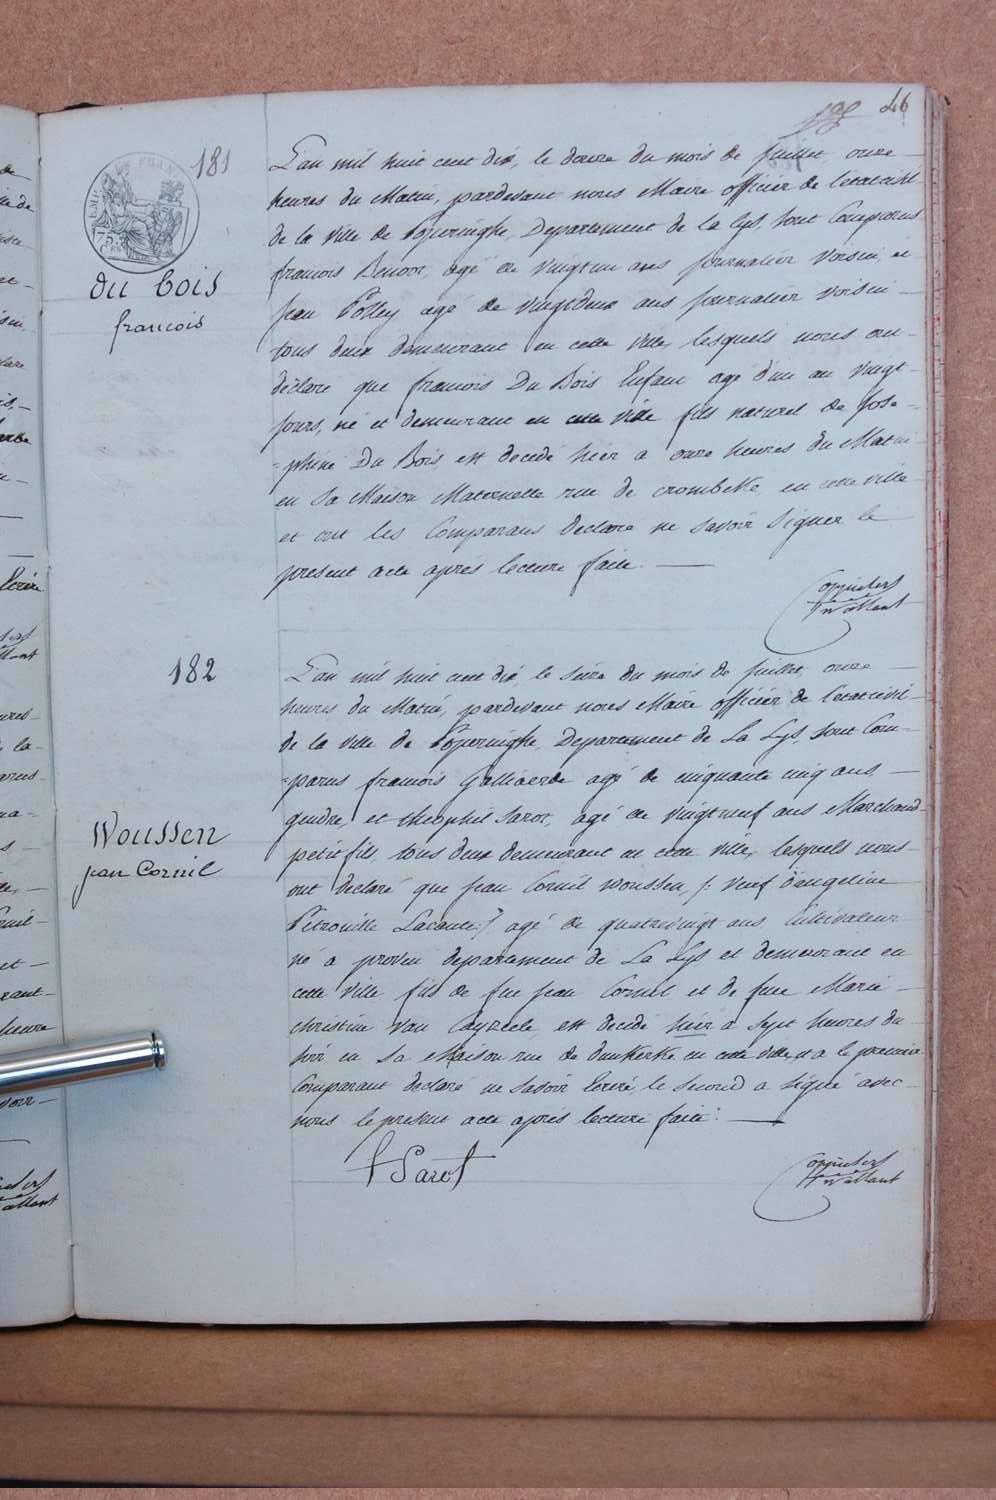 46
181
du bois
francois
L'an mil huit cent dix, le douze du mois de Juillet, onze
heures du Matin, pardevant nous Maire officier de l'etatcivil
de la ville de Poperinghe, Departement de la Lys, sont Comparus
francois Benoot, agé de vingtun ans journalier voisin, et
jean Possey agé de vingtdeux ans journalier voisin
tous deux demeurant en cette ville, lesquels nous ont
déclaré que francois Du Bois Enfant agé d'un an vingt
jours, né et demeurant en cette ville fils naturel de Jose-
=phine Du Bois, est decedé hier a onze heures du Matin
en sa Maison Maternelle rue de crombekke, en cette ville
et ont les Comparans declaré ne savoir signer le
present acte après lecture faite.
182
Woussen
jean Cornil
L'an mil huit cent dix le seize du mois de Juillet, onze
heures du Matin, pardevant nous Maire officier de l'etatcivil
de la ville de Poperinghe, Departement de La Lys, sont Com-
=parus francois Galliaerde agé de cinquante cinq ans,
gendre, et theophil Sarot, agé de vingtneuf ans Marchand
petit fils, tous deux demeurant en cette ville, lesquels nous
ont declaré que jean Cornil Woussen, /: veuf d'angeline
Petronille Lacante :/ agé de quatrevingt ans, Cultivateur
né a proven departement de La Lys et demeurant en
cette ville fils de feu jean Cornil et de feue Marie
christine Van Cayzeele, est decedé hier a sept heures du
soir en sa Maison rue de dunkerke en cette ville, et a le premier
Comparant declaré ne savoir Ecrire, le second a signé avec
nous le present acte après lecture faite.
Sarot